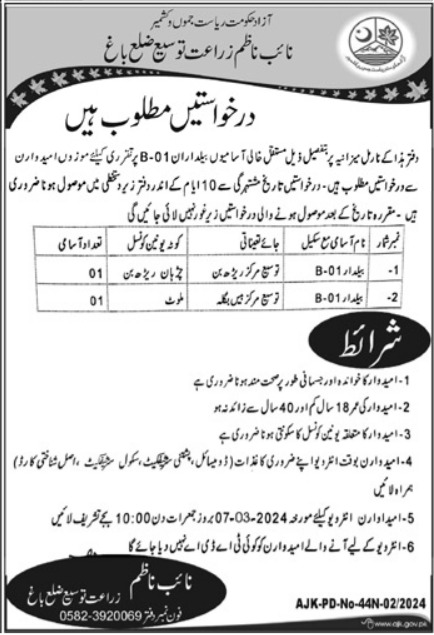 آزاد حکومت ریاست جموں و کشمیر
نائب ناظم زراعت توسیع ضلع باغ
درخواستیں مطلوب ہیں
دفتر ہذا کے نارمل میزانیہ پر بتفصیل ذیل مستقل خالی آسامیوں بیلداران B-01 پر تقرری کیلئے موزوں امیدوارن
سے درخواستیں مطلوب ہیں۔ درخواستیں تاریخ مشتہرگی سے 10 ایام کے اندر دفتر زیر دستخطی میں موصول ہونا ضروری
ہیں۔ مقررہ تاریخ کے بعد موصول ہونے والی درخواستیں زیر غور نہیں لائی جائیں گی
نمبر شمار نام آسامی مع سکیل جائے تعیناتی کوٹہ یونین کونسل تعداد آسامی
1- بیلدار B-01 توسیع مرکز ریڑھ بن چڑہان ریڑھ بن 01
2- بیلدار B-01 توسیع مرکز ہیس بگلہ ملوٹ 01
شرائط
1- امیدوار کا خواندہ اور جسمانی طور پر صحت مند ہونا ضروری ہے
2- امیدوار کی عمر 18 سال کم اور 40 سال سے زائد نہ ہو
3- امیدوار کا متعلقہ یونین کونسل کا سکونتی ہونا ضروری ہے
4- امیدوارن بوقت انٹرویو اپنے ضروری کاغذات (ڈومیسائل، پشتنی سرٹیفکیٹ، سکول سرٹیفکیٹ، اصل شناختی کارڈ)
ہمراہ لائیں
5- امیداوارن انٹرویو کیلئے مورخہ 07-03-2024 بروز جمعرات دن 10:00 بجے تشریف لائیں
6- انٹرویو کے لیے آنے والے امیدوارن کو کوئی ٹی اے ڈی اے نہیں دیا جائے گا
نائب ناظم
زراعت توسیع ضلع باغ
فون نمبر دفتر 0582-3920069
AJK-PD-No-44N-02/2024
www.ajk.gov.pk